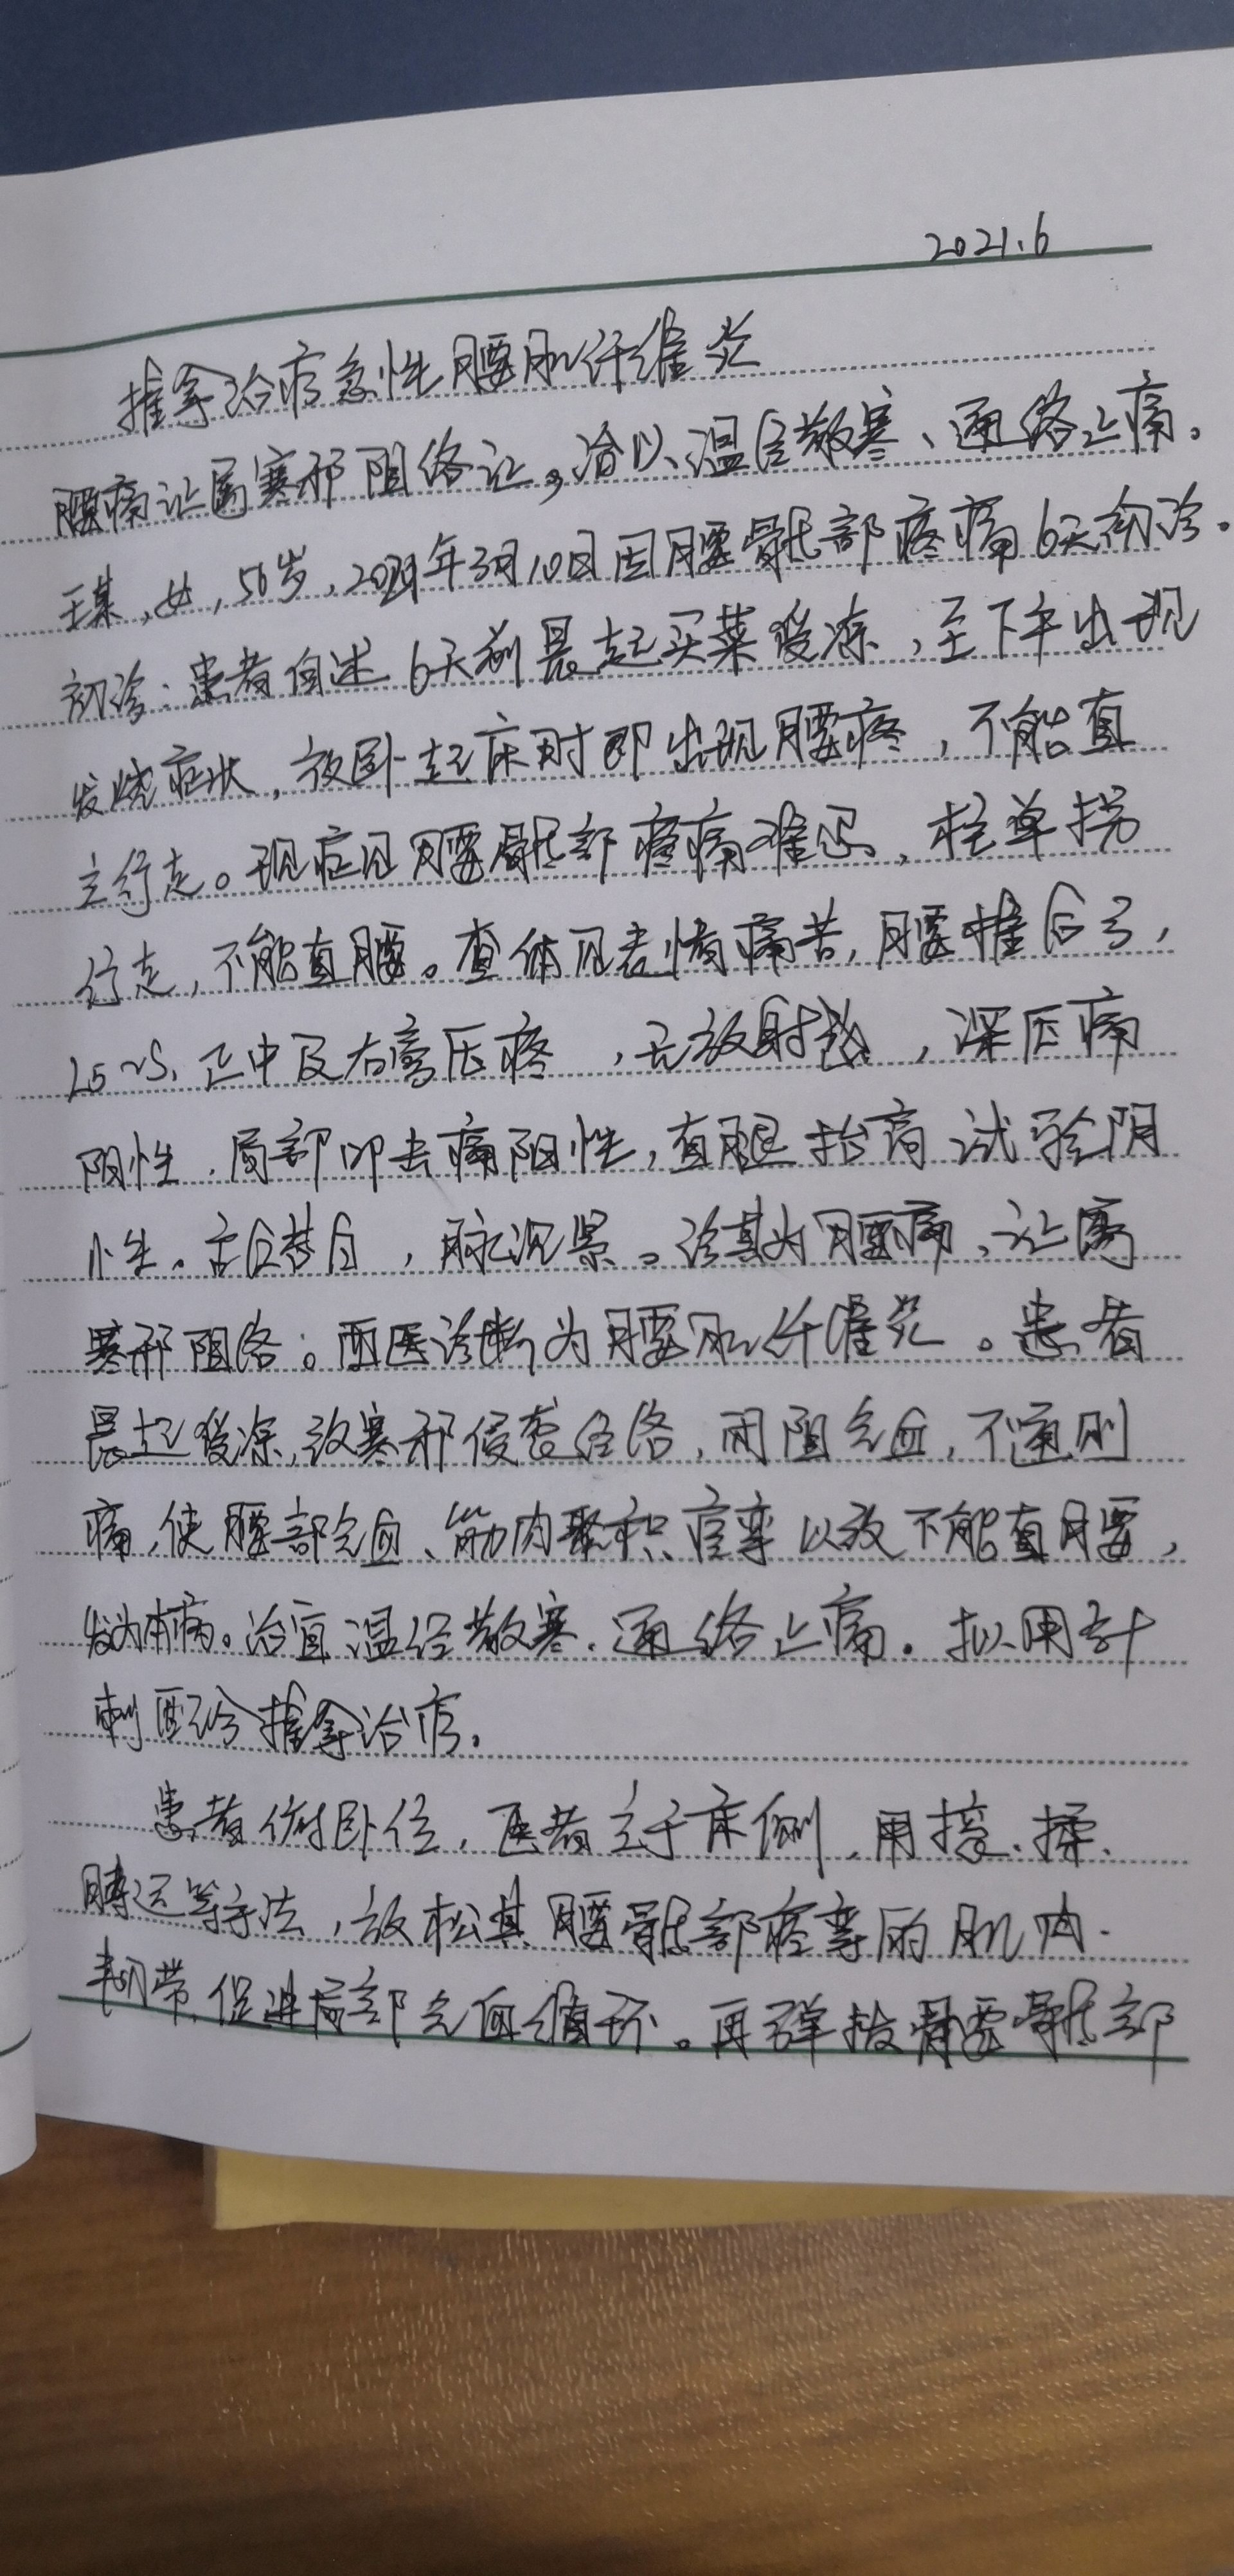 2021.6
推拿治疗急性腰肌纤维炎
腰痛证属寒邪阻络证,治以温经散寒、通络止痛。
王某,女,56岁,2021年3月10日因腰骶部疼痛6天初诊。
初诊:患者自述6天前晨起买菜受凉,至下午出现
发烧症状,夜卧起床时即出现腰疼,不能直
立行走。现症见腰骶部疼痛难忍,拄单拐
行走,不能直腰。查体见表情痛苦,腰椎后弓,
L5~S1正中及右旁压疼,无放射感,深压痛
阴性,局部叩击痛阳性,直腿抬高试验阴
性。舌淡苔白,脉沉紧。诊其为腰痛,证属
寒邪阻络。西医诊断为腰肌纤维炎。患者
晨起受凉,故寒邪侵袭经络,闭阻气血,不通则
痛,使腰部气血、筋肉聚积痉挛以致不能直腰,
发为本病。治宜温经散寒,通络止痛。拟用针
刺配合推拿治疗。
患者俯卧位,医者立于床侧,用接、揉、
膊运等手法,放松其腰骶部痉挛的肌肉、
韧带,促进局部气血循环。再弹拨腰骶部